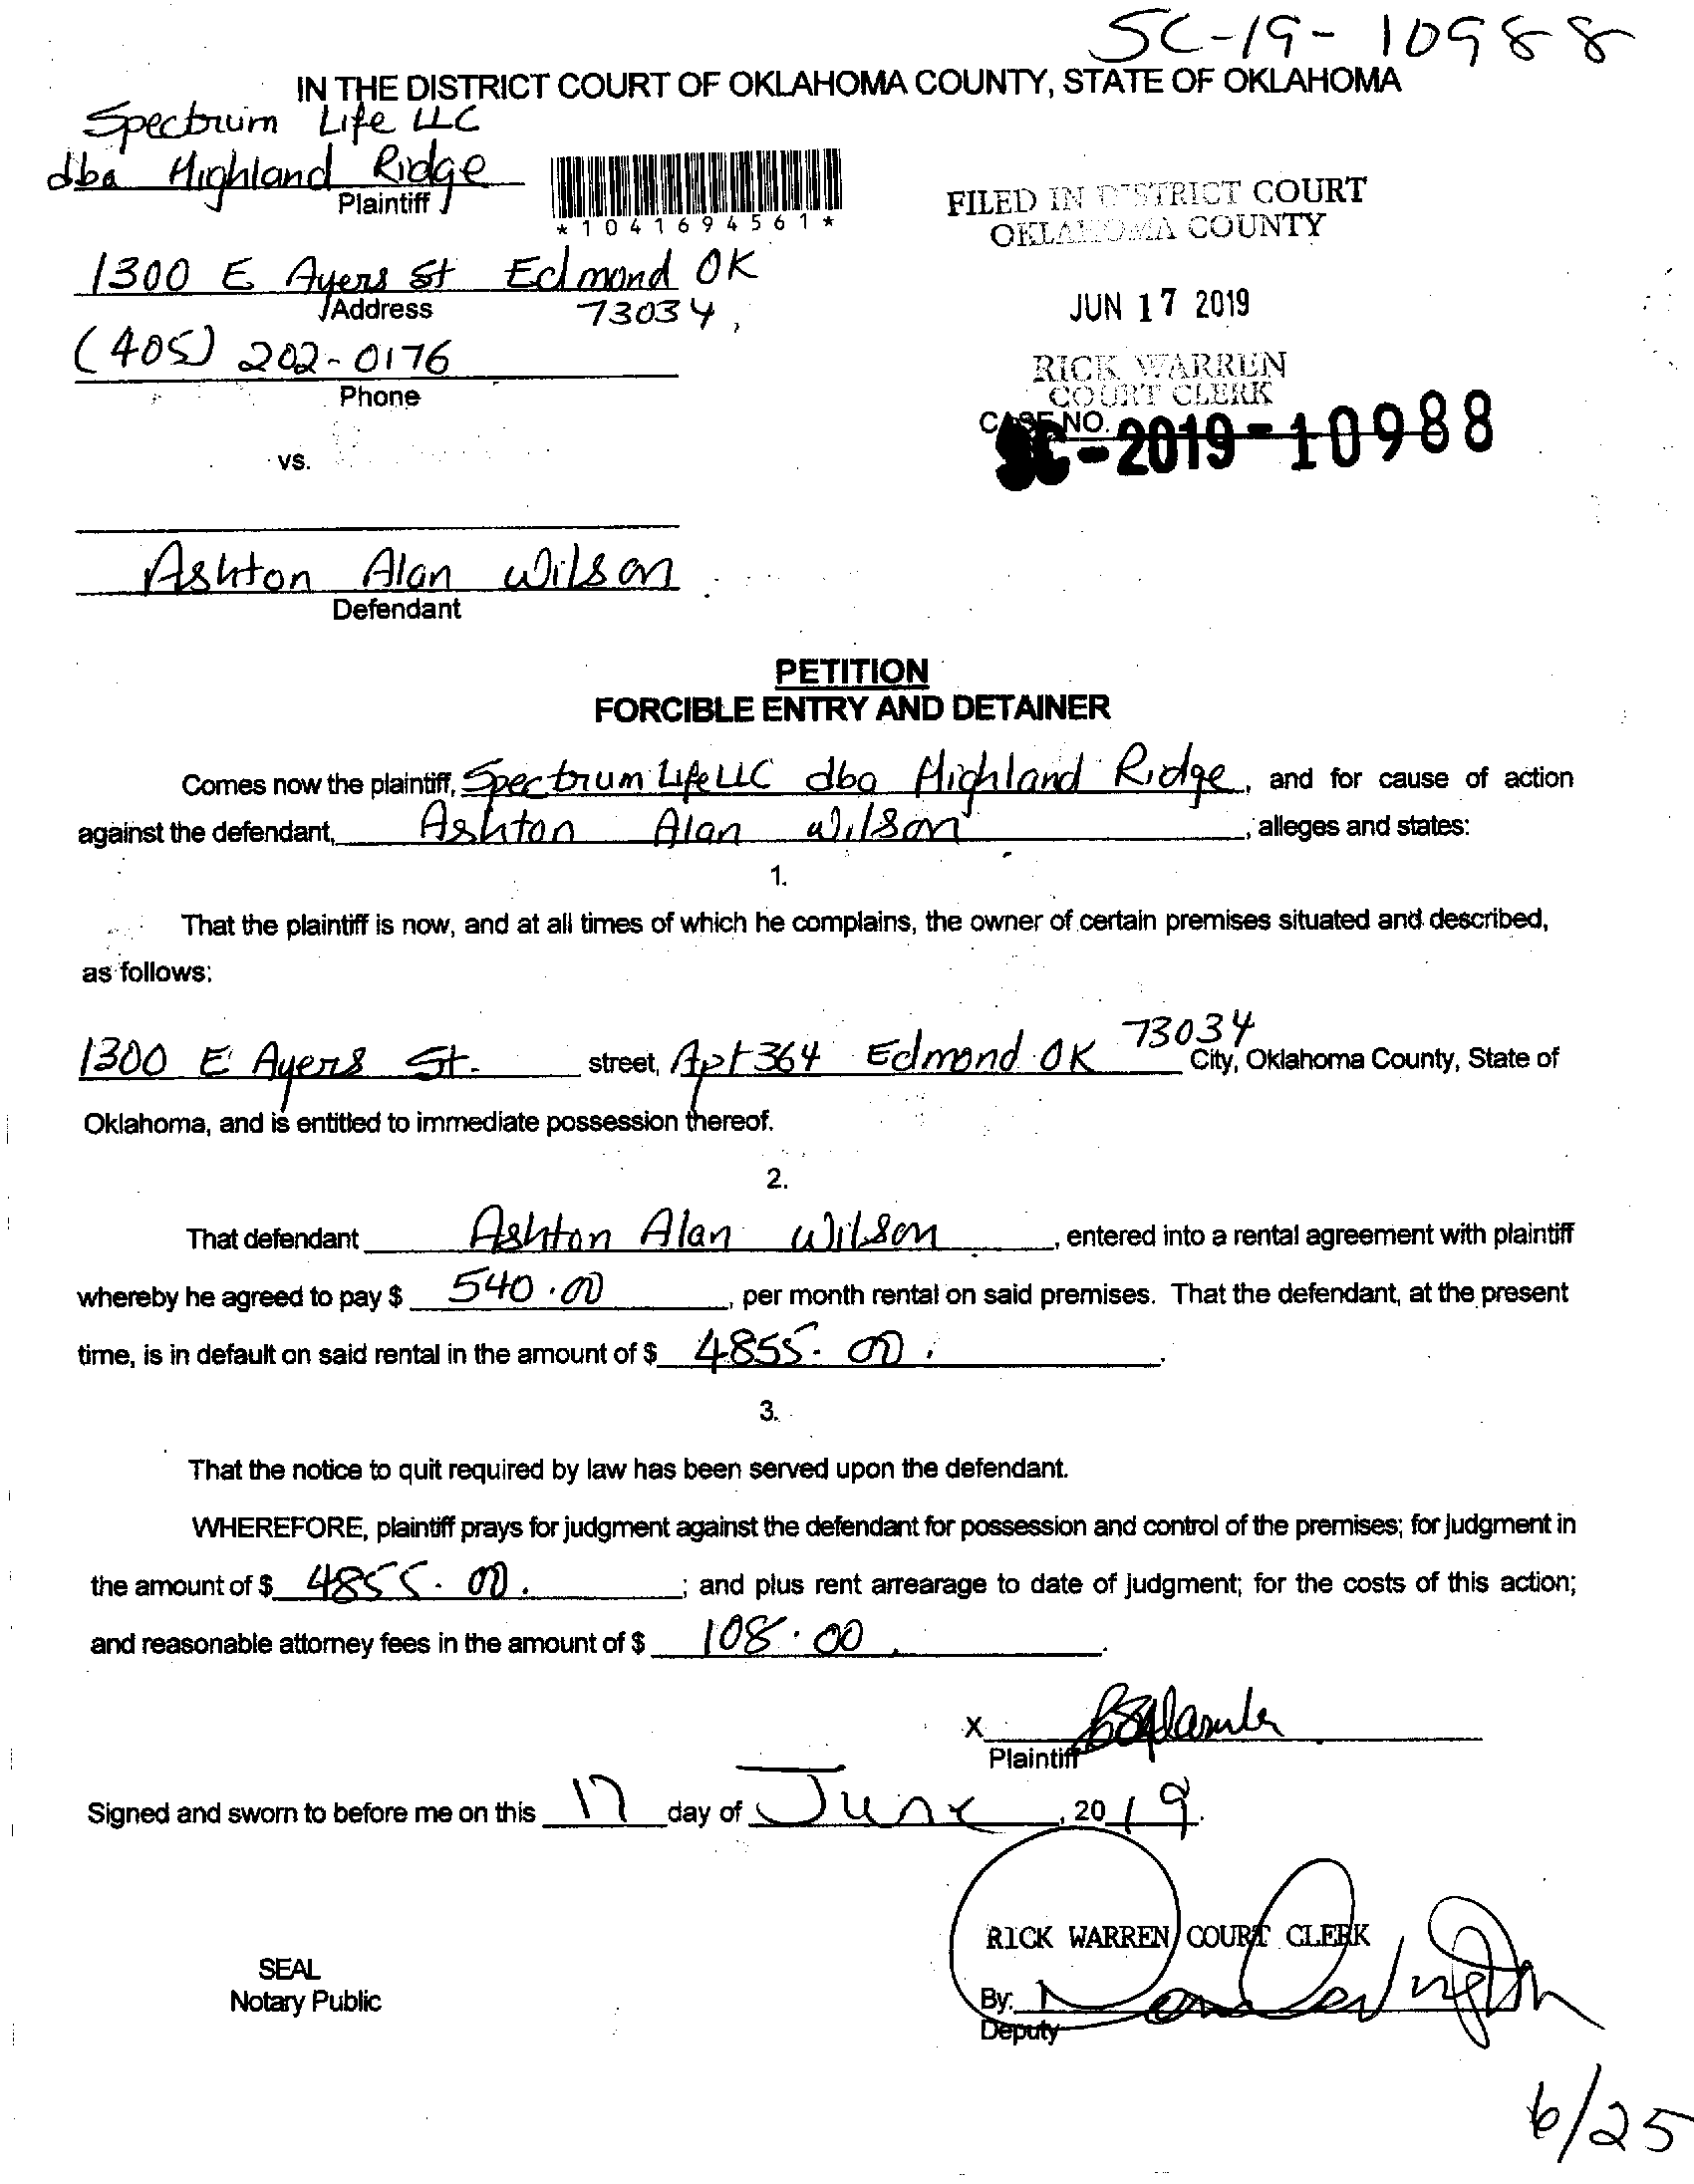 SC-19-10988
IN THE DISTRICT COURT OF OKLAHOMA COUNTY, STATE OF OKLAHOMA
Spectrum Life LLC
dba Highland Ridge
Plaintiff
*1041694561*
FILED IN DISTRICT COURT
OKLAHOMA COUNTY
1300 E Ayers St Edmond OK
Address
73034,
JUN 17 2019
(405) 202-0176
Phone
RICK WARREN
COURT CLERK
CASE NO.
SC-2019-10988
vs.
Ashton Alan Wilson
Defendant
PETITION
FORCIBLE ENTRY AND DETAINER
Comes now the plaintiff, Spectrum Life LLC dba Highland Ridge, and for cause of action
against the defendant, Ashton Alan Wilson, alleges and states:
1.
That the plaintiff is now, and at all times of which he complains, the owner of certain premises situated and described,
as follows:
1300 E Ayers St. street, Apt 364 Edmond OK 73034 City, Oklahoma County, State of
Oklahoma, and is entitled to immediate possession thereof.
2.
That defendant Ashton Alan Wilson, entered into a rental agreement with plaintiff
whereby he agreed to pay $ 540.00, per month rental on said premises. That the defendant, at the present
time, is in default on said rental in the amount of $ 4855.00.
3.
That the notice to quit required by law has been served upon the defendant.
WHEREFORE, plaintiff prays for judgment against the defendant for possession and control of the premises; for judgment in
the amount of $ 4855.00.; and plus rent arrearage to date of judgment; for the costs of this action;
and reasonable attorney fees in the amount of $ 108.00.
X
Plaintiff
Signed and sworn to before me on this 17 day of June, 2019.
RICK WARREN COURT CLERK
SEAL
Notary Public
By:
Deputy
6/25